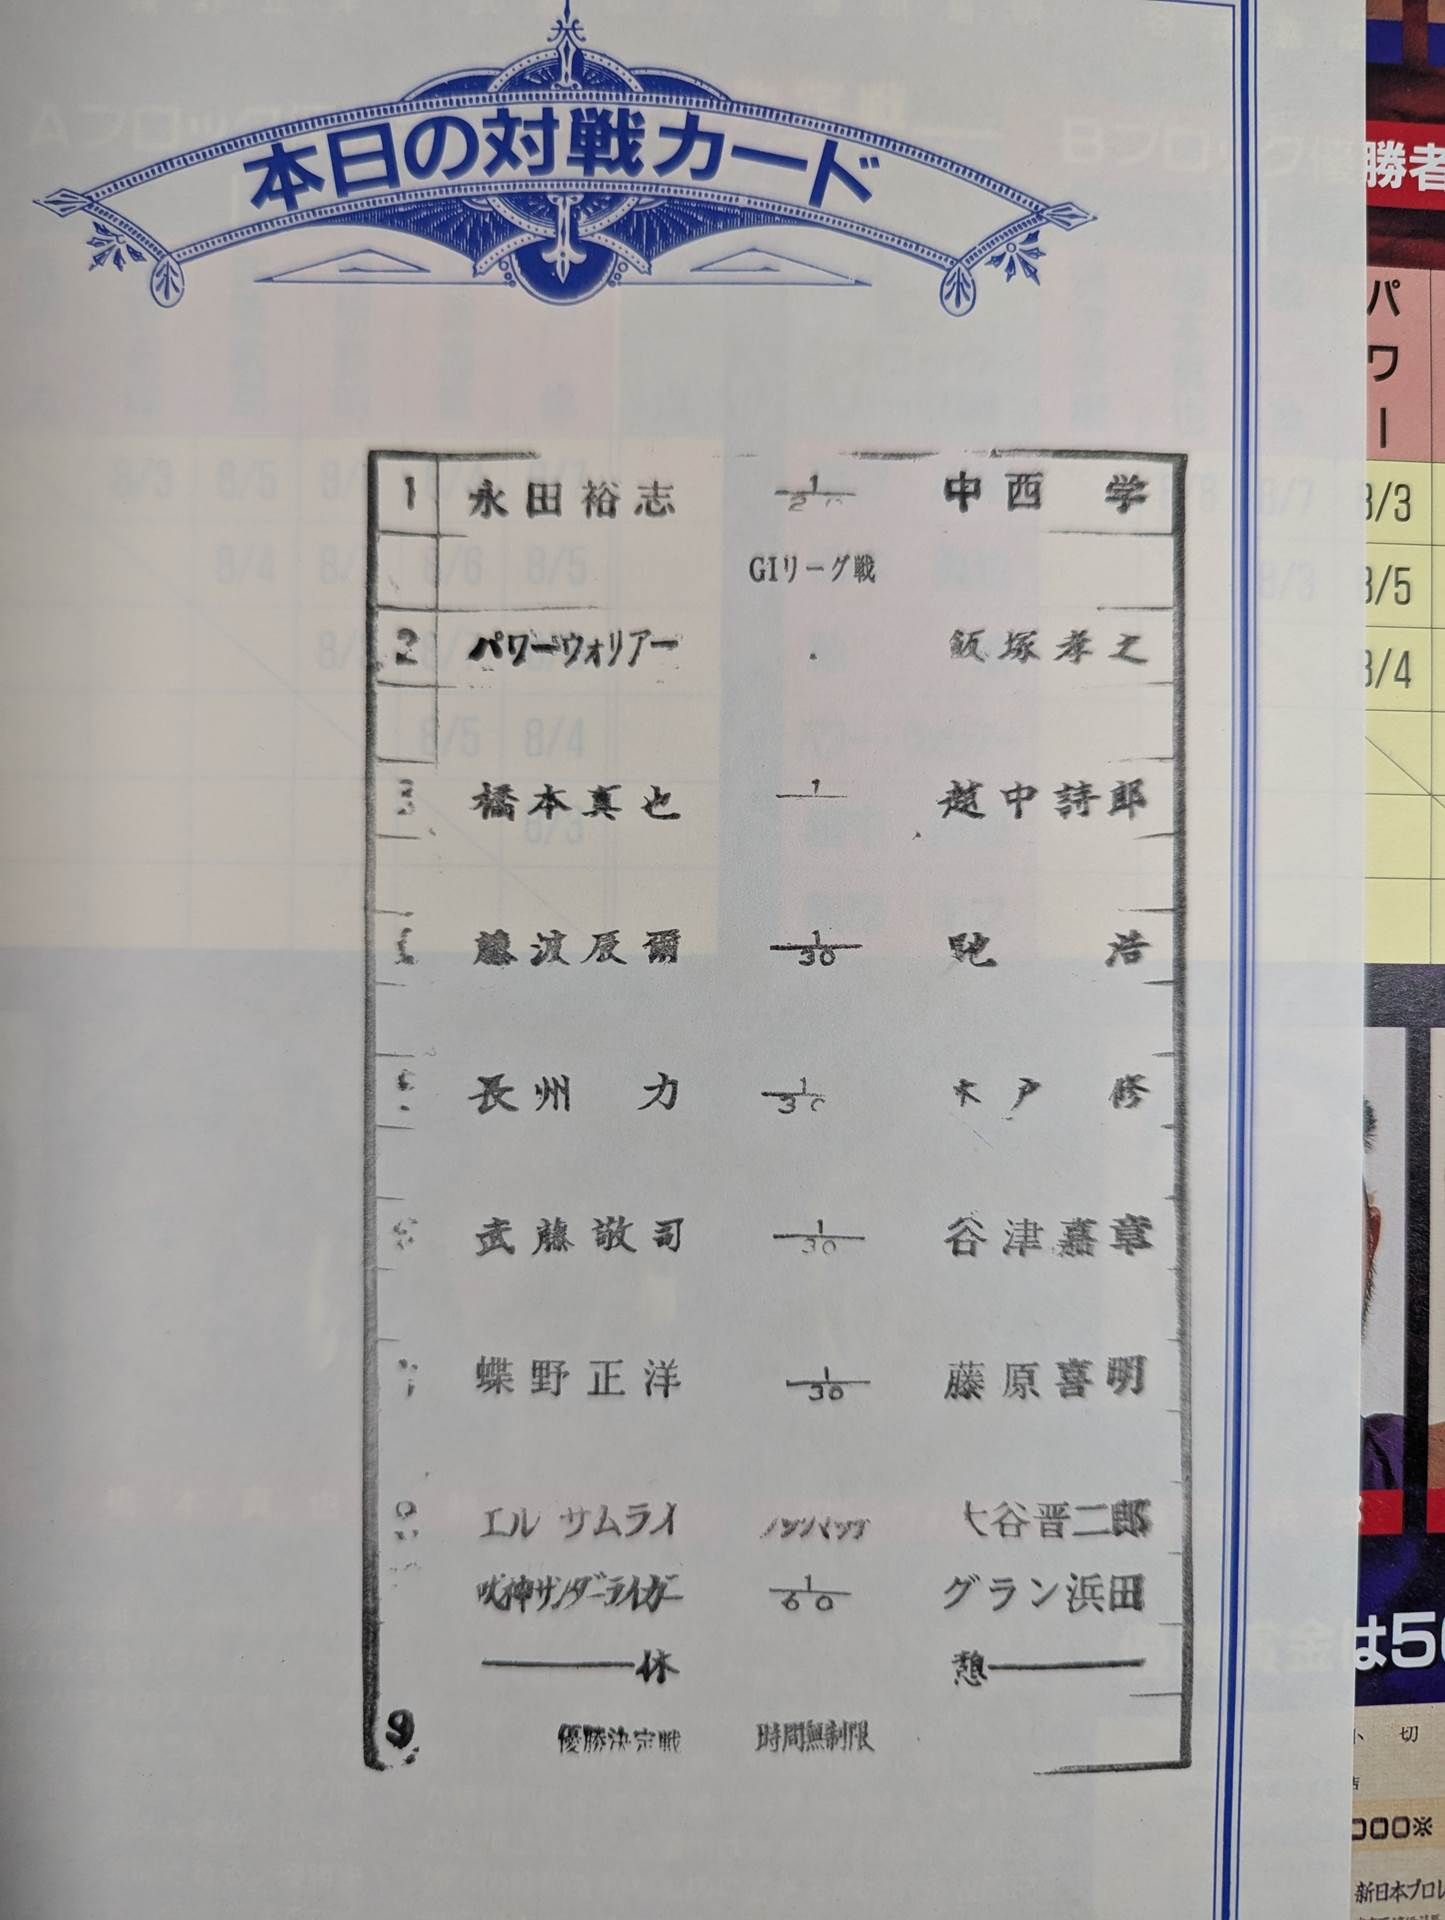 本日の対戦カード
1 永田裕志 1/20 中西 学
G1リーグ戦
2 パワーウォリアー 飯塚孝之
3 橋本真也 1 越中詩郎
藤波辰爾 1/30 馳 浩
長州 力 1/30 木戸 修
武藤敬司 1/30 谷津嘉章
蝶野正洋 1/30 藤原喜明
8 エル サムライ ノンタイトル 大谷晋二郎
獣神サンダーライガー 1/60 グラン浜田
休 憩
9 優勝決定戦 時間無制限
勝者
パワー
8/3
8/5
8/4
は50
小切
000※
新日本プロレ